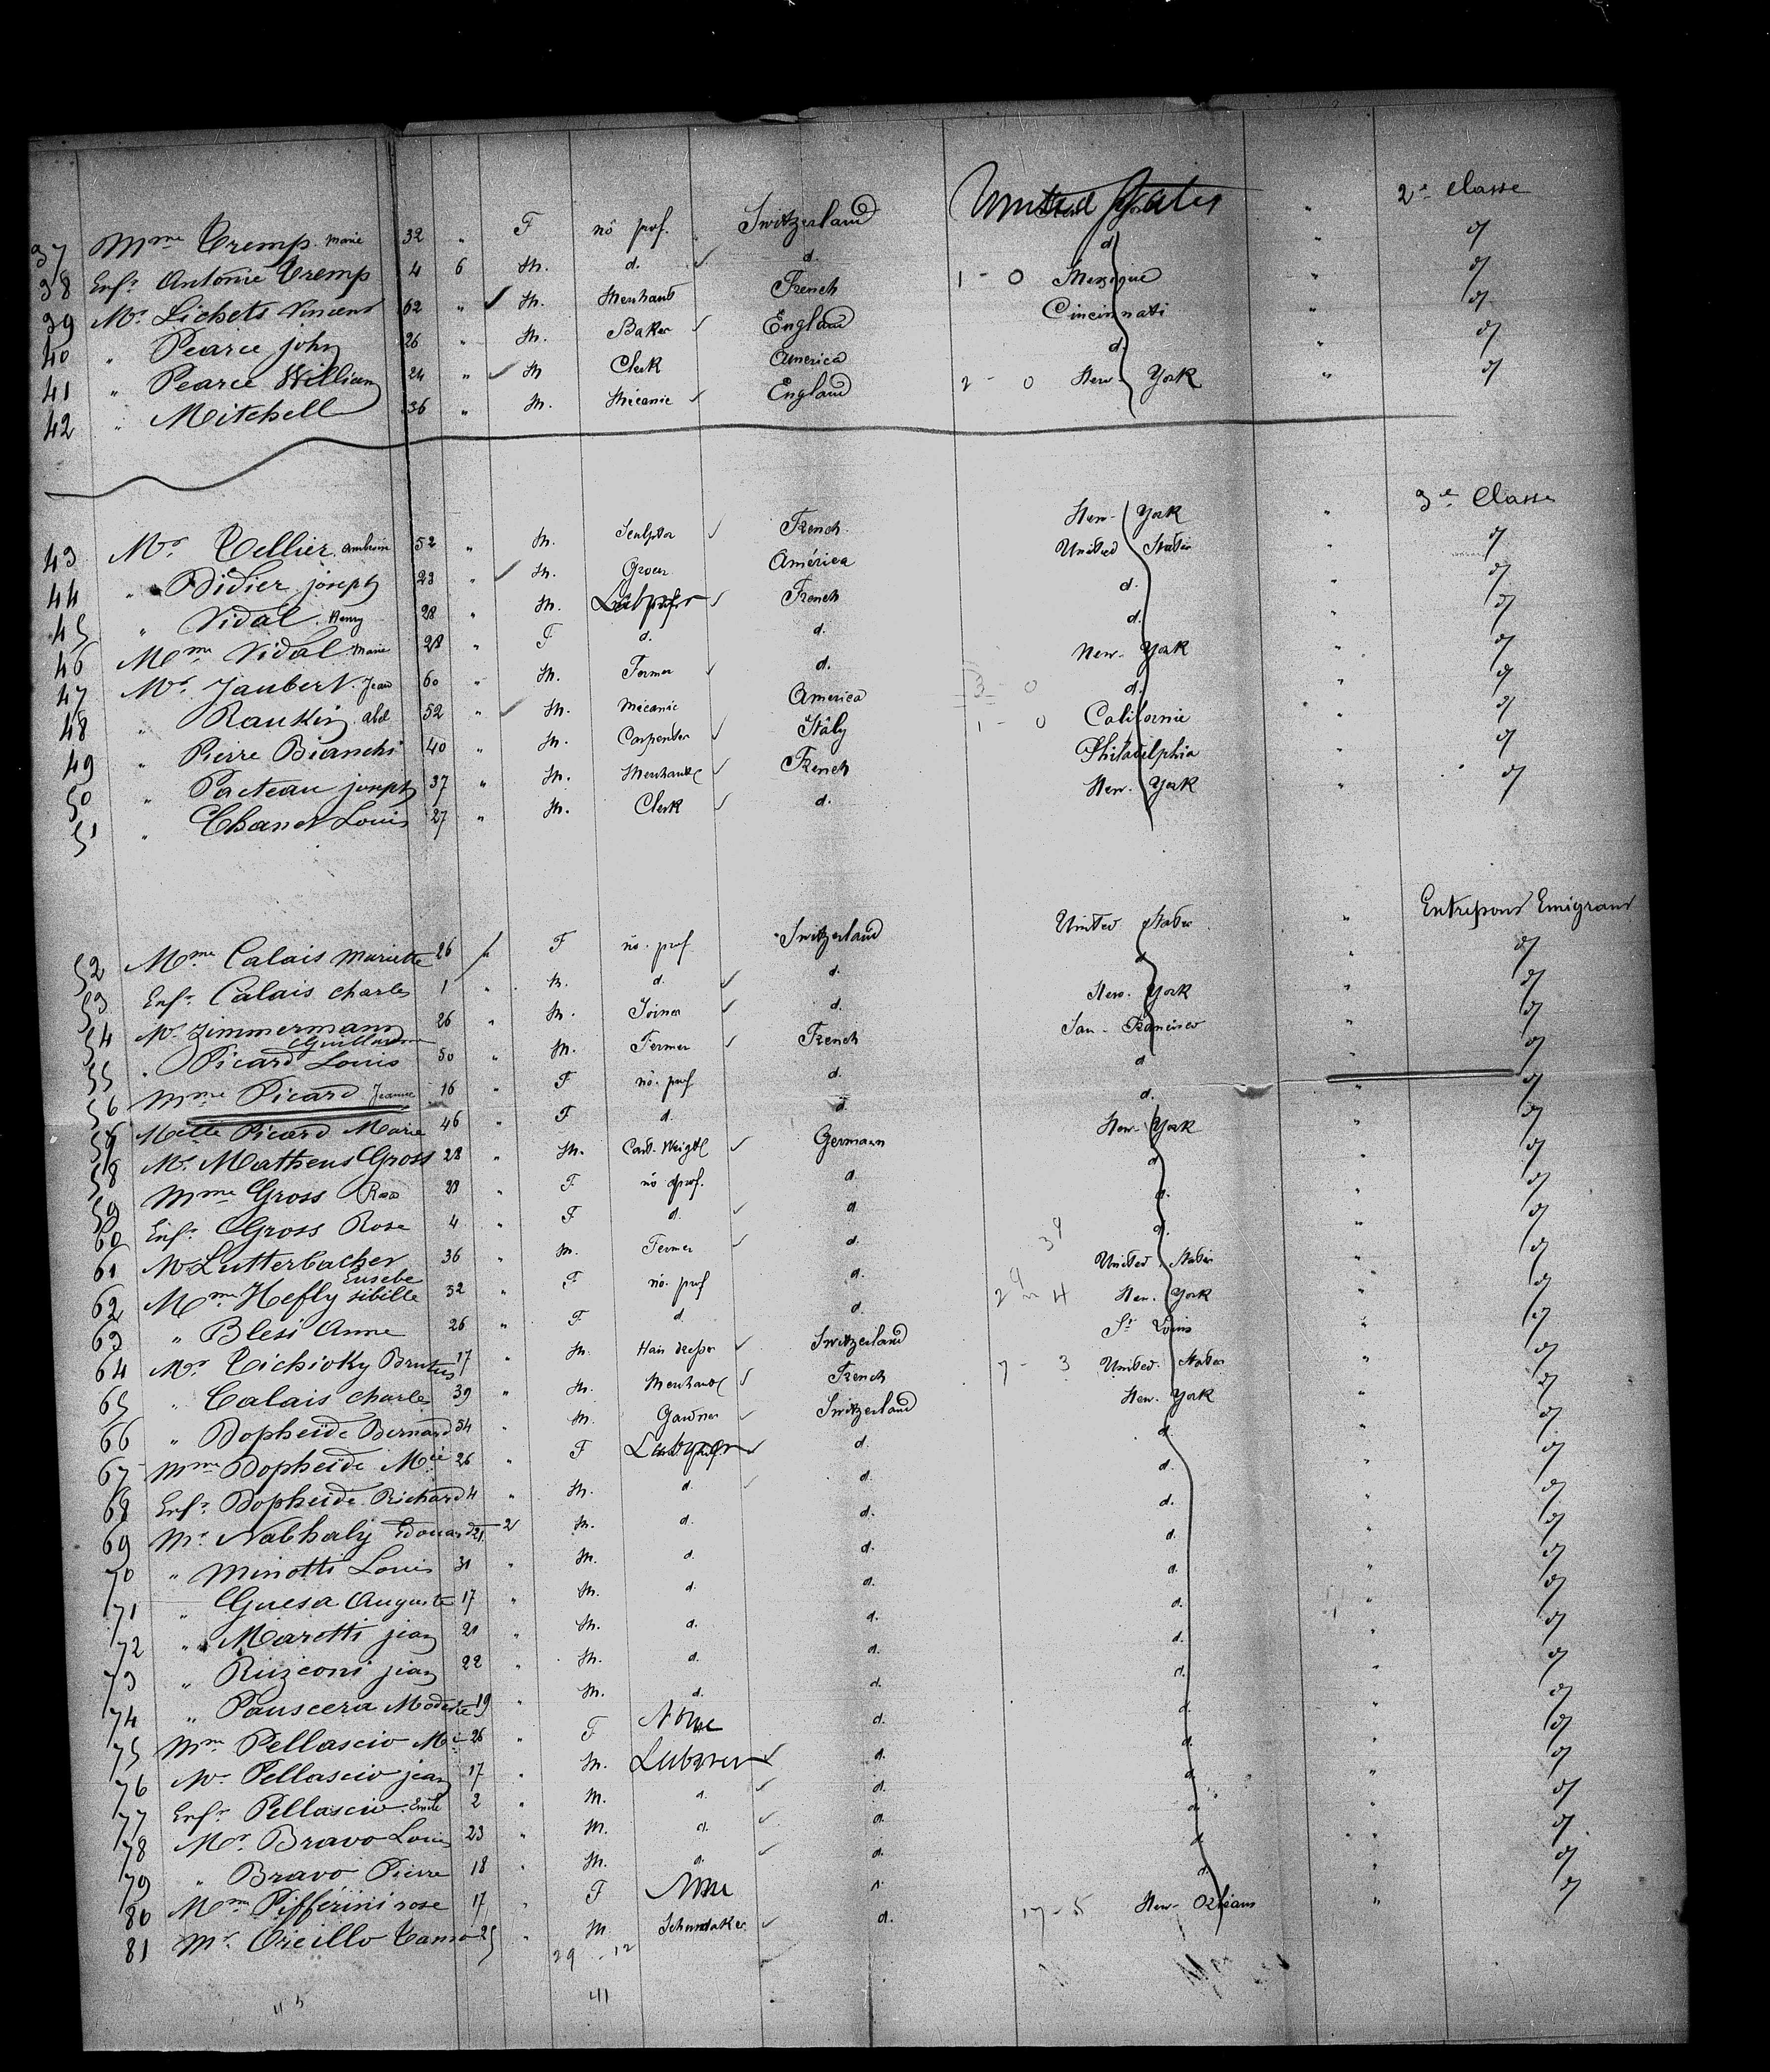 United States 2e Classe
37 Mme Tremp Marie 32 " F no prof. Switzerland " d
38 Enfr Antonie Tremp 4 6 M. d. d. d " d
39 Mr Lichets Vincent 62 " M. Merchant French 1 - 0 Mexique " d
40 " Pearce john 26 " M. Baker England Cincinnati " d
41 " Pearce William 24 " M Clerk America d. " d
42 " Mitchell 36 " M. Mécanic England 2 - 0 New York " d
3e Classe
43 Mr Tellier Ambroise 52 " M. Sculptor French New-York " d
44 " Didier joseph 23 " M. Grocer América United States " d
45 " Vidal Henry 28 " M. Labrer French d. " d
46 Mme Vidal Marie 28 " F d. d. d. " d
47 Mr Jaubert Jean 60 " M. Fermer d. New-York " d
48 " Rankin abel 52 " M. Mécanic America 3 - 0 d. " d
49 " Pierre Bianchi 40 " M. Carpenter Italy 1 - 0 Californie " d
50 " Pacteau joseph 37 " M. Merchant French Philadelphia " d
51 " Chanet Louis 27 " M. Clerk d. New-York " d
Entrepont Emigrant
52 Mme Calais Mariette 26 " F no. prof Switzerland United States " d
53 Enfr Calais Charles 1 " M. d. d. d " d
54 Mr Zimmermann 26 " M. Joiner d. New-York " d
Guillaume
55 " Picard Louis 50 " M. Fermer French San-Francisco " d
56 Mme Picard Jeanne 16 " F no. prof d. d " d
57 Melle Picard Marie 46 " F d. d. d. " d
58 Mr Matheus Gross 28 " M. Cart-Weigt Germann New-York " d
59 Mme Gross Rosa 28 " F no prof. d. d " d
60 Enfr Gross Rose 4 " F d. d d. " d
61 Mr Lutterbacher 36 " M. Fermer d. d. " d
Eusebe
62 Mme Hefly Sibille 32 " F no. prof d. United States " d
63 " Blesi Anne 26 " F d. d. 2 4 New-York " d
64 Mr Tichioky Brutus 17 " M. Hair dresser Switzerland St Louis " d
65 " Calais Charles 39 " M. Merchant French 7 - 3 United States " d
66 " Dopheide Bernard 34 " M. Gardner Switzerland New-York " d
67 Mme Dopheide Mie 26 " F Labrer d. d. " d
68 Enfr Dopheide Richard 4 " M. d. d. d. " d
69 Mr Nabhaly Edouard 21 2 M. d. d. d. " d
70 " Minotti Louis 31 " M. d. d. d. " d
71 " Guesa Auguste 17 " M. d. d. d. " d
72 " Maretti jean 21 " M. d. d. d. " d
73 " Rizconi jean 22 " M. d. d. d. " d
74 " Pauscera Modeste 19 " M. d. d. d. " d
75 Mme Pellascio Mie 26 " F None d. d. " d
76 Mr Pellascio jean 17 " M. Labrer d. d. " d
77 Enfr Pellascio Emile 2 " M. d. d. d. " d
78 Mr Bravo Louis 23 " M. d. d. d. " d
79 " Bravo Pierre 18 " M. d. d. d. " d
80 Mme Pifferini rose 17 " F None d. d. " d
81 Mr Orcillo 25 " M Schumaker d. 17 - 5 New-Orleans " d
29 - 12
41